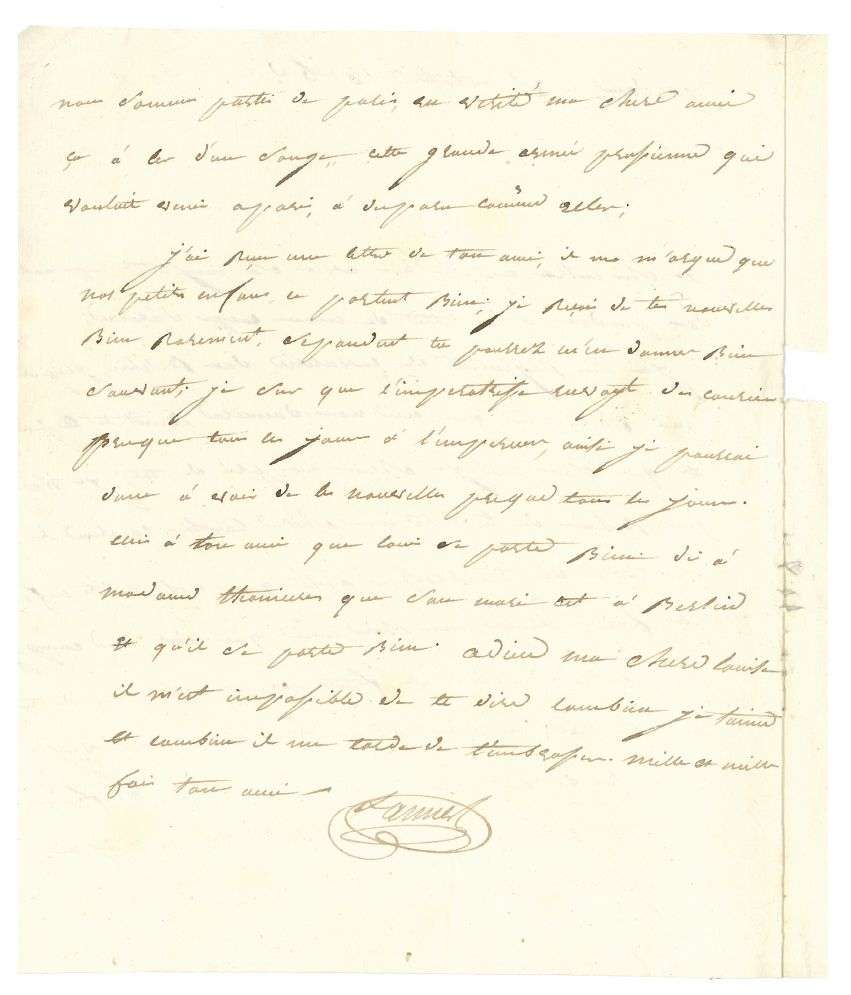 nous somme partis de paris, en vérité ma cher amie
ça à l'er d'un songe, cette grande armé prusienne qui
voulait venir a paris, à disparu comme
j'ai reçu une lettre de ton ami, il me m'arque que
nos petits enfans ce portent Bien; je reçoi de tes nouvelles
Bien Rarement, cependant tu pourrez m'en donner Bien
souvant; je sui que l'imperatrisse envoyt des courier
presque tous les jour à l'empereur, ainsi je pourrai
donc à voir de tes nouvelles presque tous les jours.
à ton ami que loui se porte Bien di à
madame thomieres que son mari est à Berlin
et qu'il se porte Bien. adieu ma cher louise
il m'est impossible de te dire combien je t'aime
et combien il me tarde de t'embrasser. mille et mille
fois ton ami
Lannes